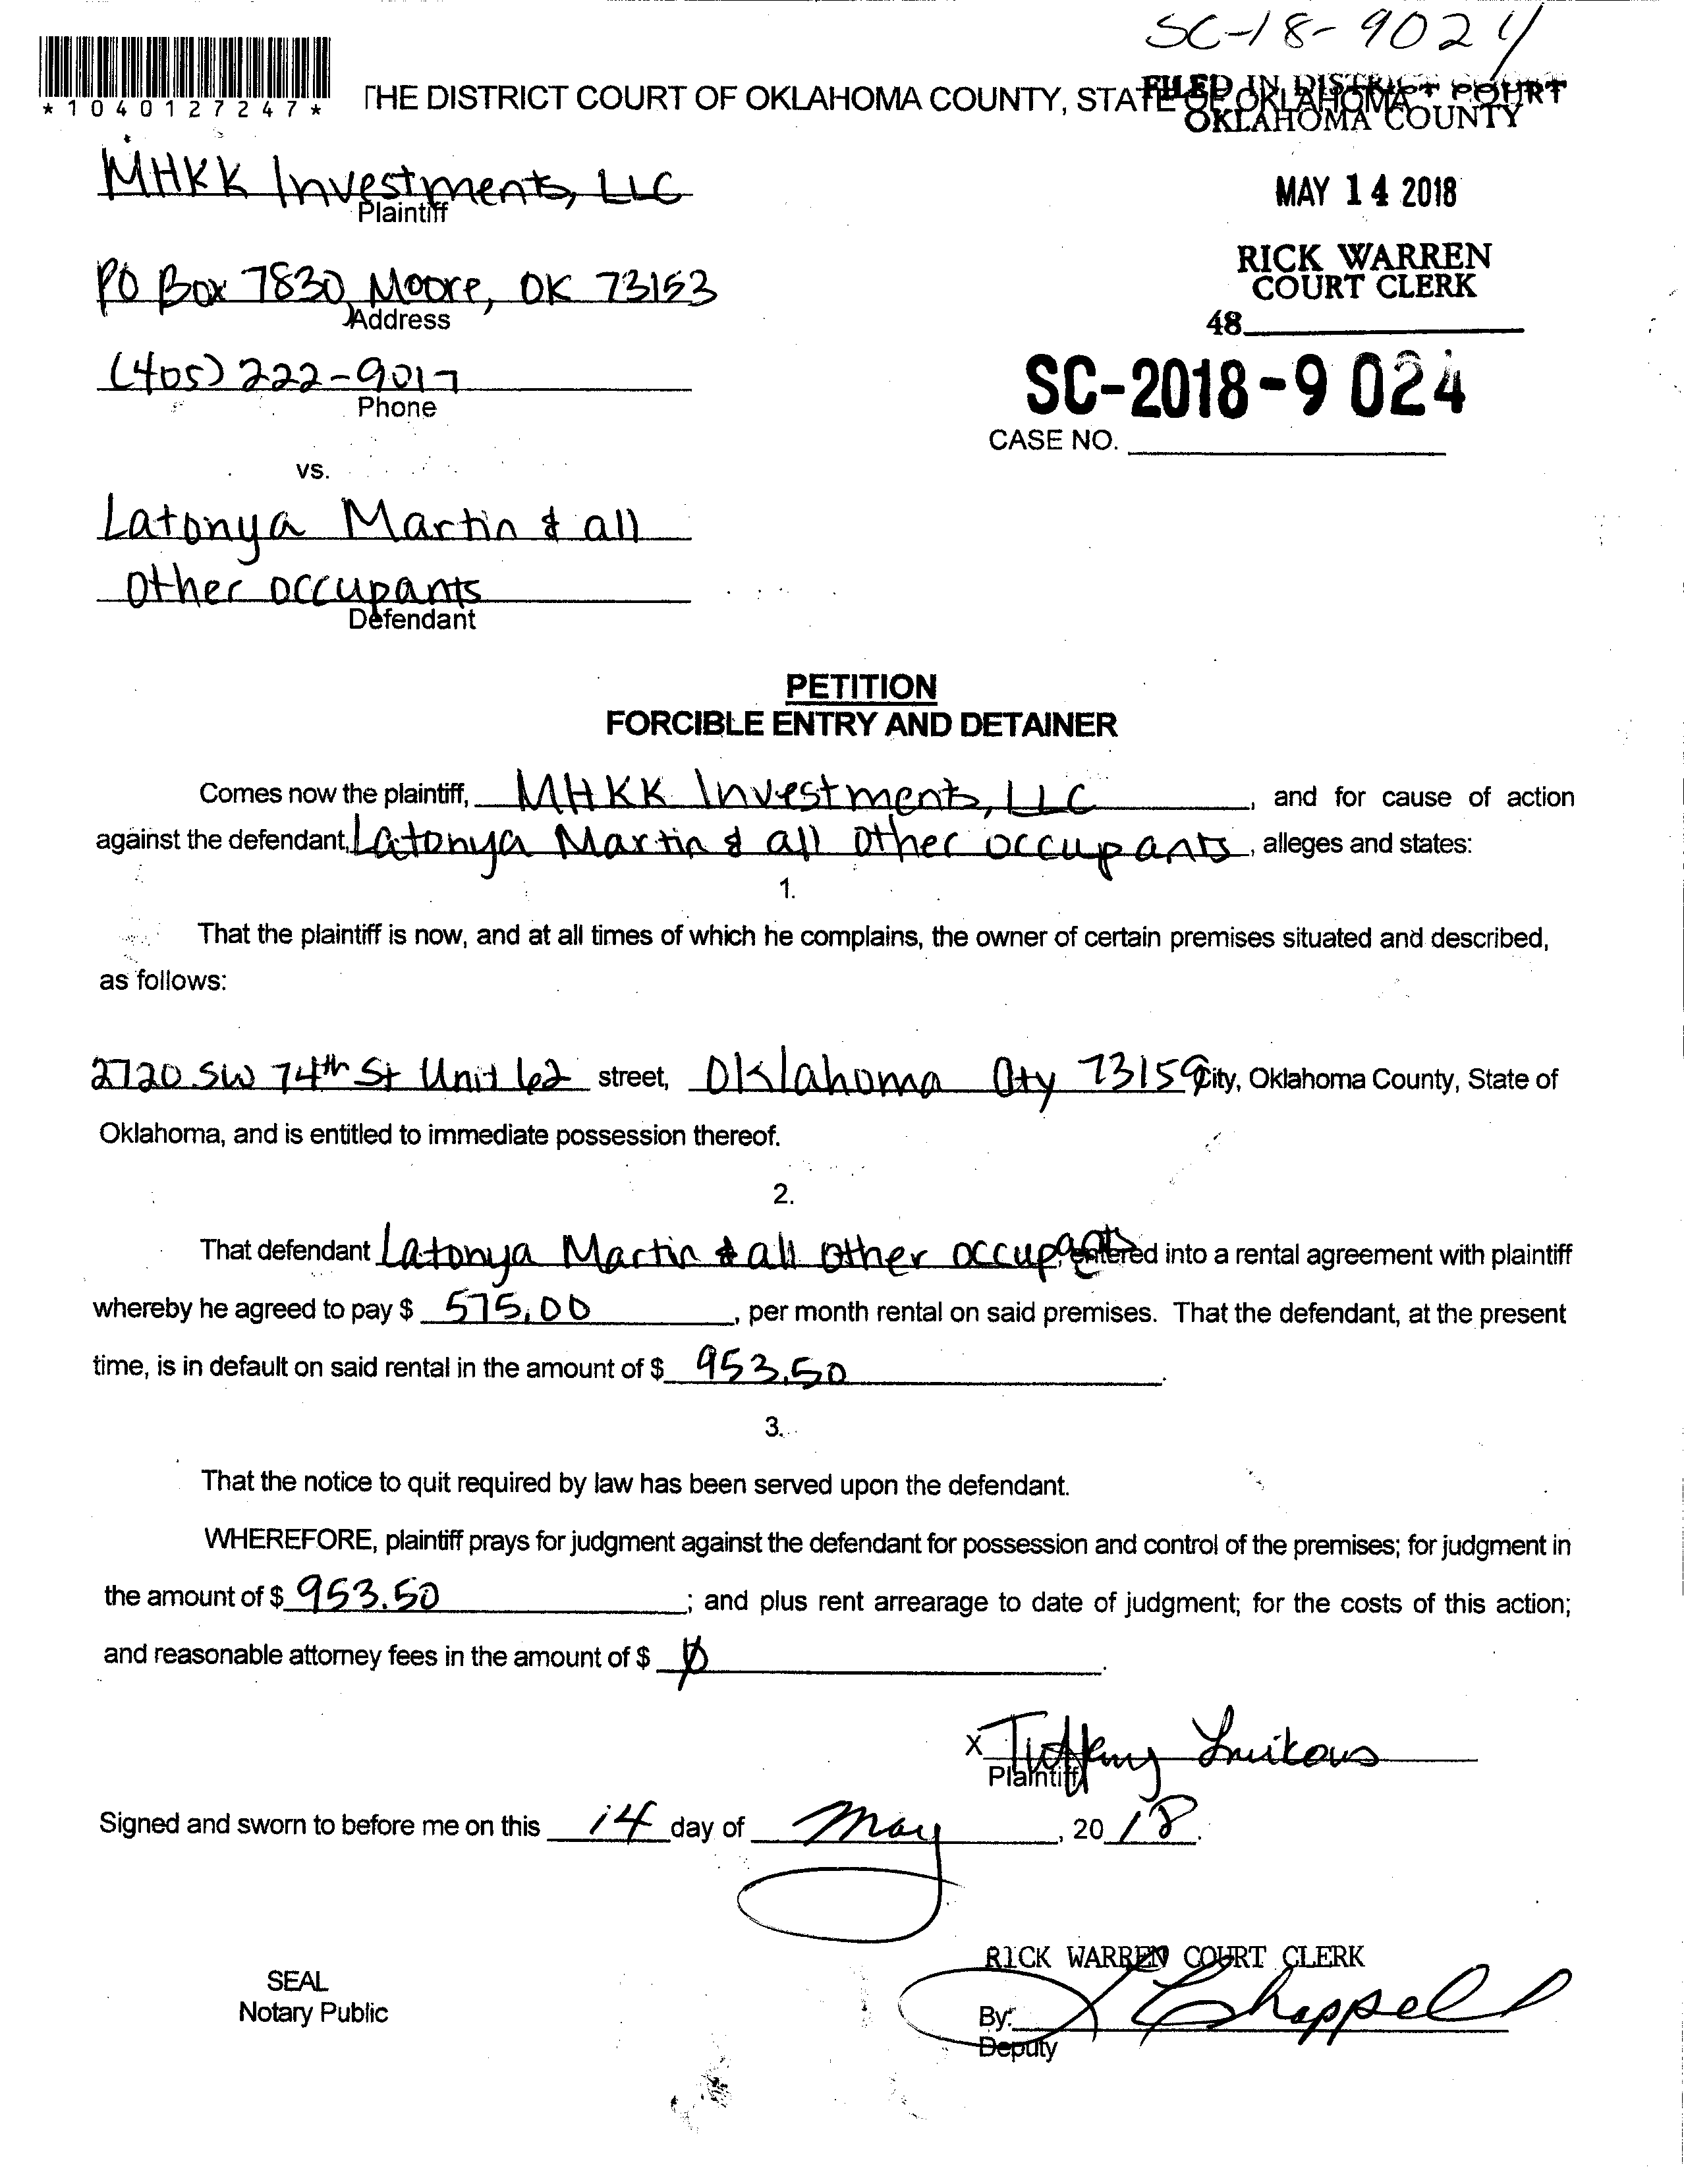 SC-18-9024
*1040127247*
THE DISTRICT COURT OF OKLAHOMA COUNTY, STATE OF OKLAHOMA
FILED IN DISTRICT COURT
OKLAHOMA COUNTY
MHKK Investments, LLC
Plaintiff
MAY 14 2018
PO Box 7830, Moore, OK 73153
Address
RICK WARREN
COURT CLERK
48
(405) 222-9017
Phone
SC-2018-9024
CASE NO.
vs.
Latonya Martin & all
other occupants
Defendant
PETITION
FORCIBLE ENTRY AND DETAINER
Comes now the plaintiff, MHKK Investments, LLC, and for cause of action
against the defendant, Latonya Martin & all other occupants, alleges and states:
1.
That the plaintiff is now, and at all times of which he complains, the owner of certain premises situated and described,
as follows:
2720 SW 74th St Unit 62 street, Oklahoma City 73159 City, Oklahoma County, State of
Oklahoma, and is entitled to immediate possession thereof.
2.
That defendant Latonya Martin & all other occupants, entered into a rental agreement with plaintiff
whereby he agreed to pay $ 575.00, per month rental on said premises. That the defendant, at the present
time, is in default on said rental in the amount of $ 953.50.
3.
That the notice to quit required by law has been served upon the defendant.
WHEREFORE, plaintiff prays for judgment against the defendant for possession and control of the premises; for judgment in
the amount of $ 953.50; and plus rent arrearage to date of judgment; for the costs of this action;
and reasonable attorney fees in the amount of $ 0.
X Tiffany
Plaintiff
Signed and sworn to before me on this 14 day of May, 2018.
RICK WARREN COURT CLERK
SEAL
Notary Public
By: Chappell
Deputy